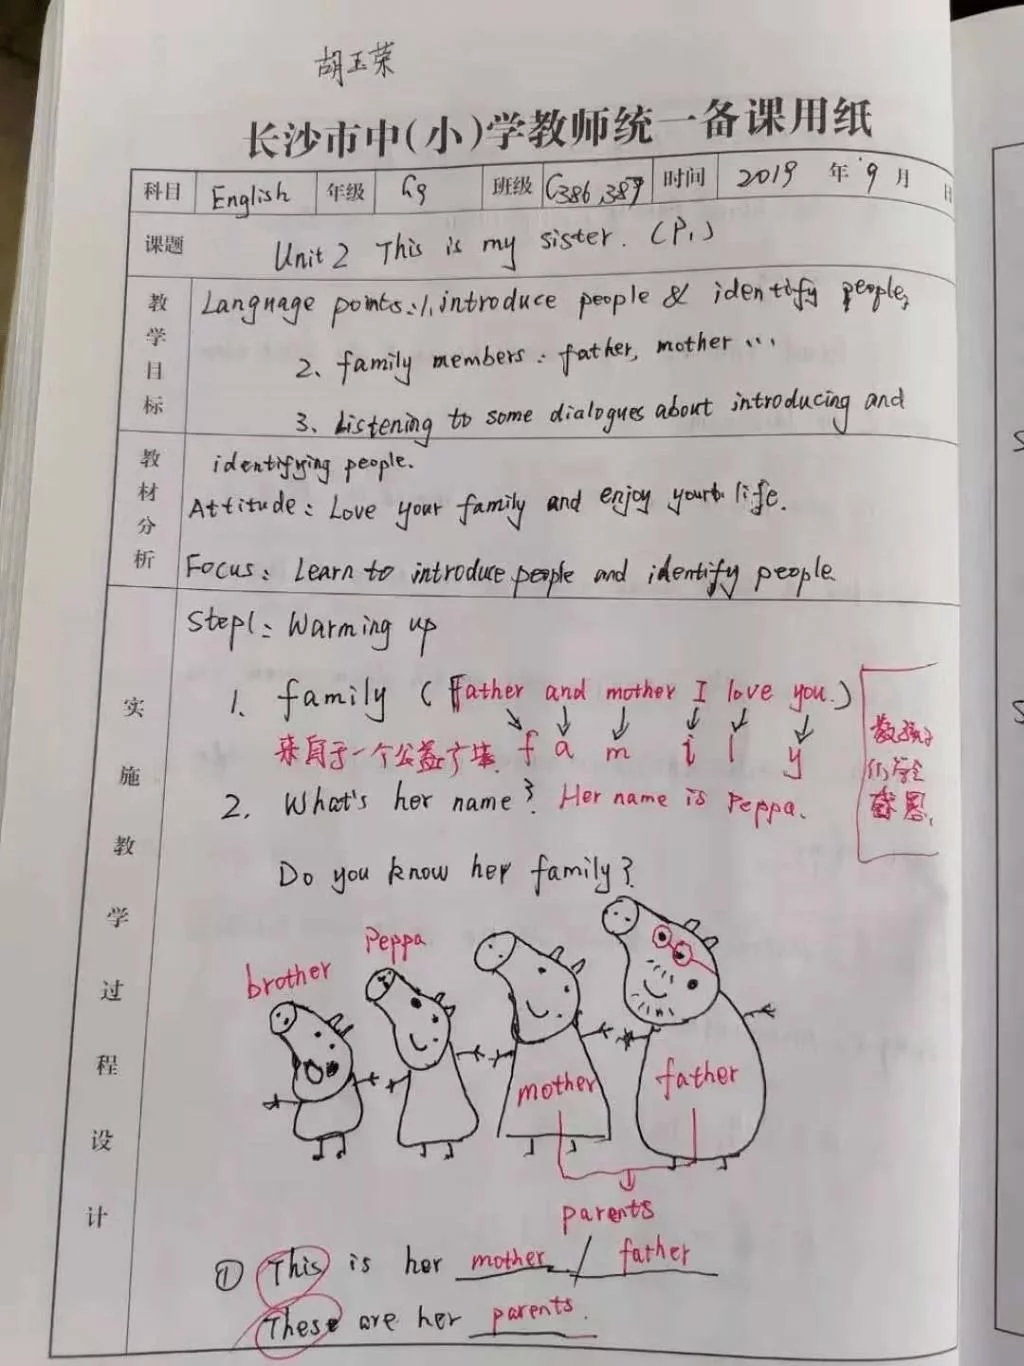 胡玉荣
长沙市中(小)学教师统一备课用纸
科目 English 年级 G9 班级 C386,387 时间 2019 年 9 月 日
课题 Unit 2 This is my sister. (P1)
教学目标
Language points: 1、introduce people & identify people;
2、family members: father, mother ...
3、Listening to some dialogues about introducing and
教材分析
identifying people.
Attitude: Love your family and enjoy your life.
Focus: Learn to introduce people and identify people.
实施教学过程设计
Step1: Warming up
1. family (Father and mother I love you.)
来自于一个公益广告. f a m i l y
教孩子
们学会
感恩.
2. What's her name? Her name is Peppa.
Do you know her family?
brother Peppa
mother father
parents
① This is her mother / father
These are her parents.